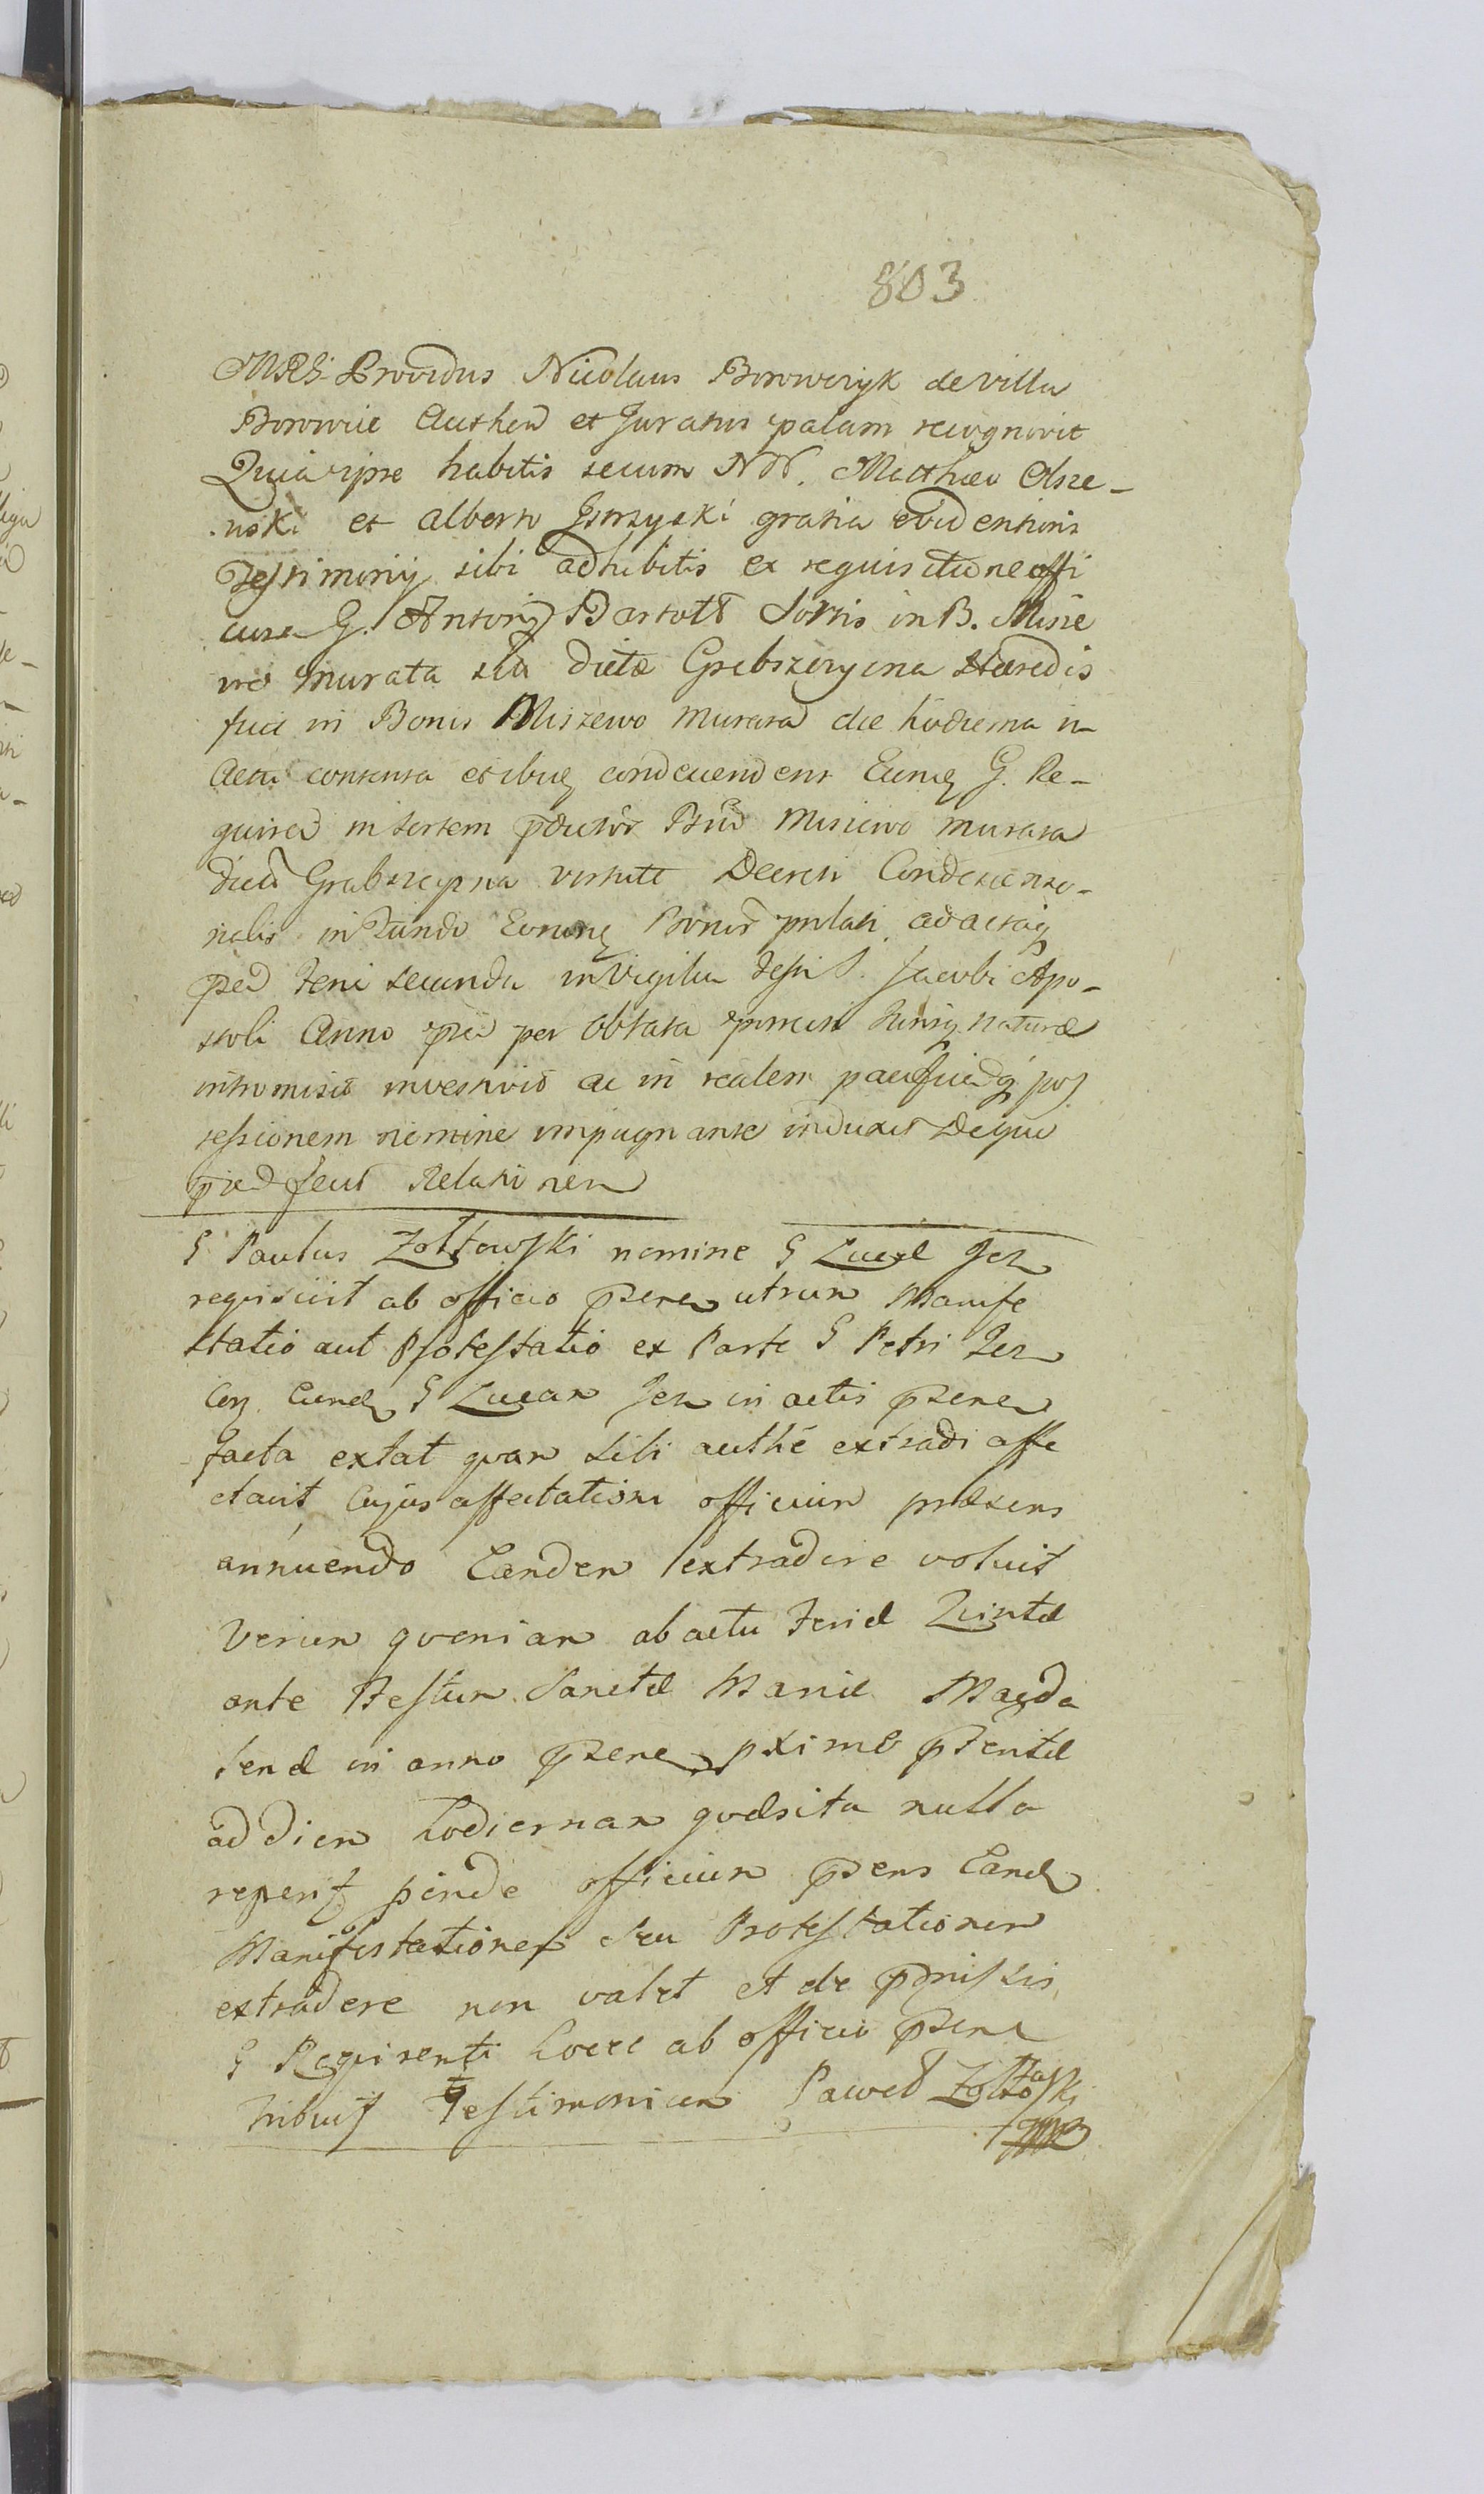 803
MRS Providus Nicolaus Borowczyk de villa
Borowice Authen et Juratus palam recognovit
Quia ipse habitis secum NN. Matthæo Olsze-
wski et Alberto gratia evidentioris
Testimonij sibi adhibitis ex requisitione offi
ciosa G. Antonij Bartołd Sortis in B. Misze
wo Murata seu dictæ Grebszczyzna Hæredis
fuit in Bonis Miszewo Murata die hodierna in
Actu contenta et ibiq condescendens Eumq G. Re-
quiren in sortem Miszewo Murata
dictã Grabszczyzna virtute Decreti Condescenso-
rialis in Fundo Eorunq Bonor prolati ad actaq
feria secunda in Vigilia Festi S. Jacobi Apo-
stoli Anno per oblata hujusq naturæ
intromisit investivit ac in realem pacificãq pos
sessionem nemine impugnante induxit Deque
fecit Relationem
G Paulus Zołtowski nomine G Lucæ Jez
requisivit ab officio psenn utrum Manife
statio aut Protestatio ex Parte G Petri Jez
Con Eund G Lucam Jez in actis psenn
facta extat quam sibi authẽ extradi affe
ctavit, Cujus affectationi officium præsens
annuendo Eandem extradere voluit
Verum quoniam ab actu Feriæ Quintæ
ante Festum Sanctæ Mariæ Magda
lenæ in anno psenn pximè pteritæ
ad diem hodiernam quæsita nulla
reperit pinde officium psens Eand
Manifestationem seu Protestationem
extradere non valet et de pmissis
G Requirenti hocce ab officio psene
tribuit Testimonium Paweł Zołtowski